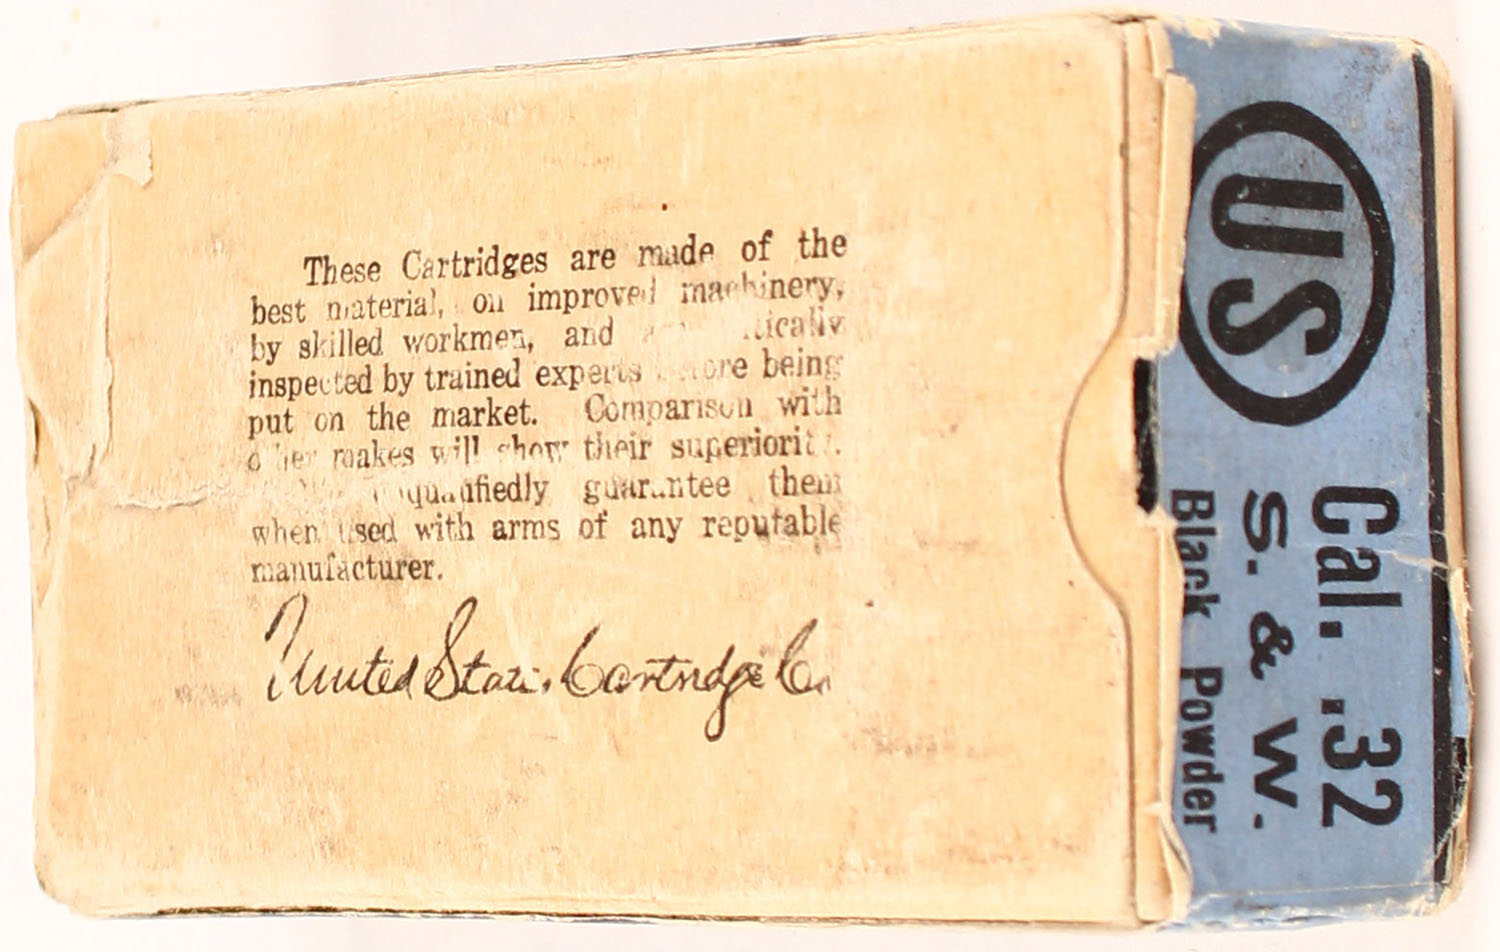 These Cartridges are made of the
best material, on improved machinery,
by skilled workmen, and
inspected by trained experts before being
put on the market. Comparison with
other makes will show their superiority.
unqualifiedly guarantee them
when used with arms of any reputable
manufacturer.
United States Cartridge Co.
US
Cal. .32
S. & W.
Black Powder